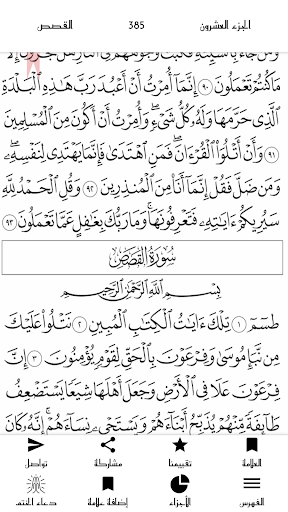 الجزء العشرون 385 القصص
مَاكُنتُمْ تَعْمَلُونَ ٩٠ إِنَّمَآ أُمِرْتُ أَنْ أَعْبُدَ رَبَّ هَٰذِهِ ٱلْبَلْدَةِ
ٱلَّذِى حَرَّمَهَا وَلَهُۥ كُلُّ شَىْءٍ ۖ وَأُمِرْتُ أَنْ أَكُونَ مِنَ ٱلْمُسْلِمِينَ
٩١ وَأَنْ أَتْلُوَا۟ ٱلْقُرْءَانَ ۖ فَمَنِ ٱهْتَدَىٰ فَإِنَّمَا يَهْتَدِى لِنَفْسِهِۦ ۖ
وَمَن ضَلَّ فَقُلْ إِنَّمَآ أَنَا۠ مِنَ ٱلْمُنذِرِينَ ٩٢ وَقُلِ ٱلْحَمْدُ لِلَّهِ
سَيُرِيكُمْ ءَايَٰتِهِۦ فَتَعْرِفُونَهَا ۚ وَمَا رَبُّكَ بِغَٰفِلٍ عَمَّا تَعْمَلُونَ ٩٣
سُورَةُ القَصَصِ
بِسْمِ ٱللَّهِ ٱلرَّحْمَٰنِ ٱلرَّحِيمِ
طسٓمٓ ١ تِلْكَ ءَايَٰتُ ٱلْكِتَٰبِ ٱلْمُبِينِ ٢ نَتْلُوا۟ عَلَيْكَ
مِن نَّبَإِ مُوسَىٰ وَفِرْعَوْنَ بِٱلْحَقِّ لِقَوْمٍ يُؤْمِنُونَ ٣ إِنَّ
فِرْعَوْنَ عَلَا فِى ٱلْأَرْضِ وَجَعَلَ أَهْلَهَا شِيَعًا يَسْتَضْعِفُ
طَآئِفَةً مِّنْهُمْ يُذَبِّحُ أَبْنَآءَهُمْ وَيَسْتَحْىِۦ نِسَآءَهُمْ ۚ إِنَّهُۥ كَانَ
العلامة تقييمنا مشاركة تواصل
الفهرس الأجزاء إضافة علامة دعاء الختم